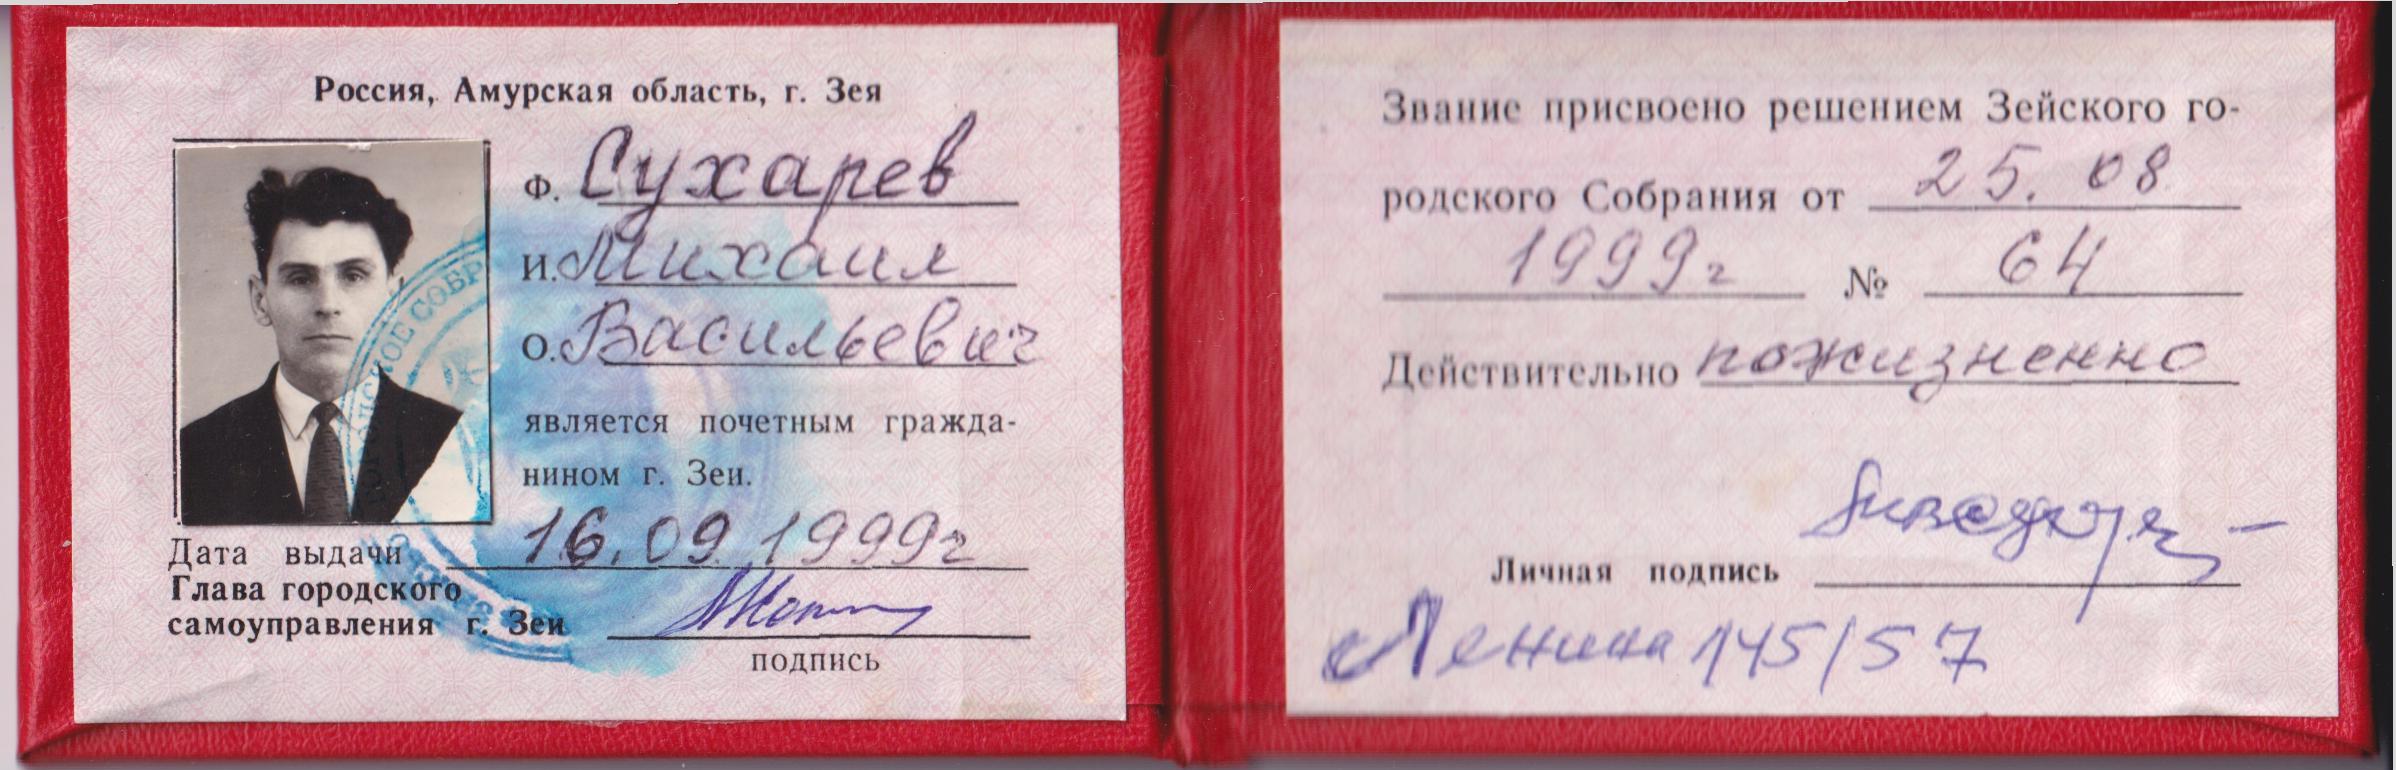 Россия, Амурская область, г. Зея
Ф. Сухарев
И. Михаил
О. Васильевич
является почетным гражда-
нином г. Зеи.
Дата выдачи 16.09.1999г
Глава городского
самоуправления г. Зеи
подпись
ГОРОДСКОЕ СОБР
Звание присвоено решением Зейского го-
родского Собрания от 25.08
1999г № 64
Действительно пожизненно
Личная подпись
Ленина 145/57